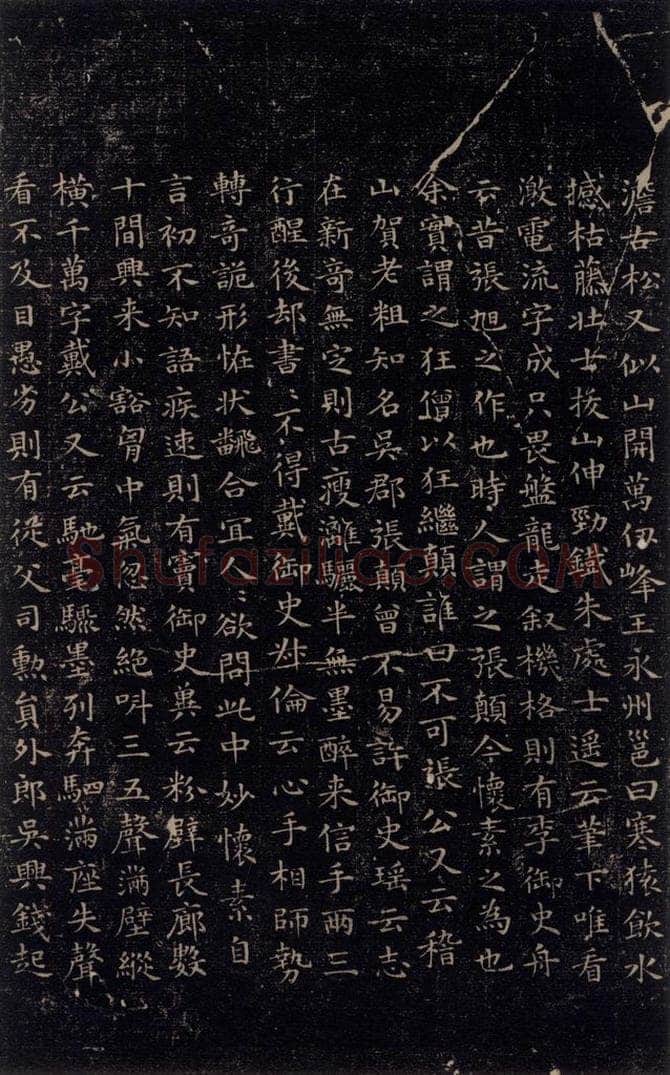 澹古松又似山開萬仞峰王永州邕曰寒猿飲水
撼枯藤壯士拔山伸勁鐵朱處士遥云筆下唯看
激電流字成只畏盤龍走叙機格則有李御史舟
云昔張旭之作也時人謂之張顛今懷素之為也
余實謂之狂僧以狂繼顛誰曰不可張公又云稽
山賀老粗知名吳郡張顛曾不易許御史瑶云志
在新奇無定則古瘦灕驪半無墨醉来信手兩三
行醒後却書〻不得戴御史叔倫云心手相師勢
轉奇詭形怪狀翻合宜人〻欲問此中妙懷素自
言初不知語疾速則有竇御史兾云粉壁長廊數
十間興来小豁胷中氣忽然絶叫三五聲滿壁縱
横千萬字戴公又云馳毫驟墨列奔駟滿座失聲
看不及目愚劣則有從父司勲員外郎吳興錢起
Shufaziliao.COM